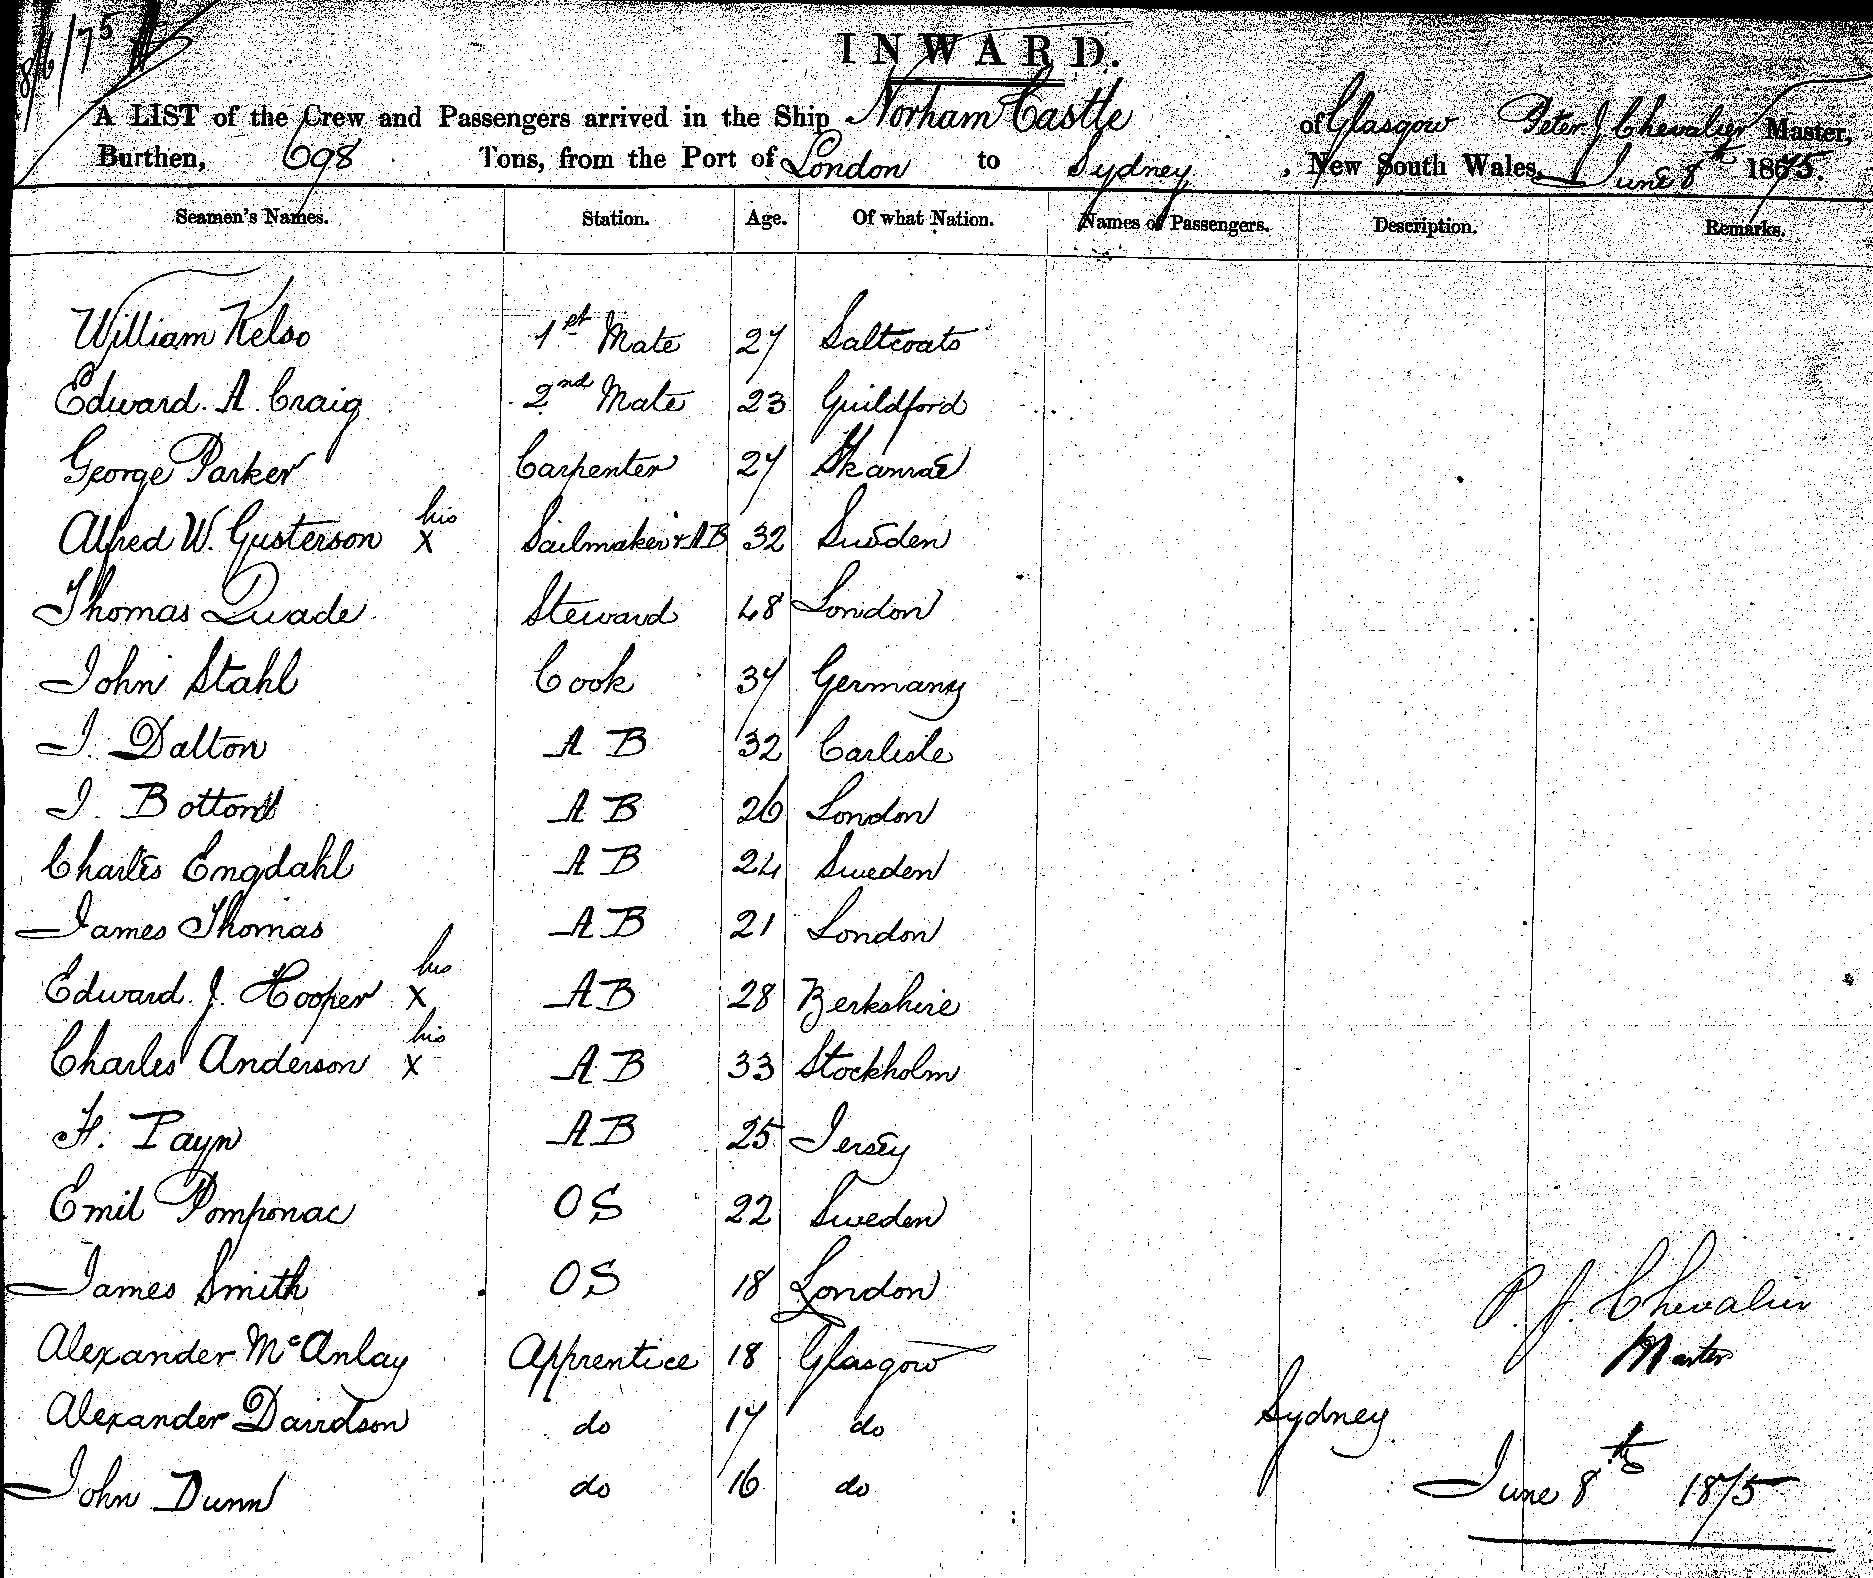 8/6/75
INWARD.
A LIST of the Crew and Passengers arrived in the Ship Norham Castle of Glasgow Peter J Chevalier Master,
Burthen, 698 Tons, from the Port of London to Sydney, New South Wales, June 8th 1875.
Seamen's Names. Station. Age. Of what Nation. Names of Passengers. Description. Remarks.
William Kelso 1st Mate 27 Saltcoats
Edward. A. Craig 2nd Mate 23 Guildford
George Parker Carpenter 27
Alfred W. Gusterson his x Sailmaker & AB 32 Sweden
Thomas Quade Steward 48 London
John Stahl Cook 37 Germany
J. Dalton A B 32 Carlisle
J. A B 26 London
Charles Engdahl A B 24 Sweden
James Thomas A B 21 London
Edward. J. Hooper his x A B 28 Berkshire
Charles Anderson his x A B 33 Stockholm
F. Payn A B 25 Jersey
Emil Pomponac O S 22 Sweden
James Smith O S 18 London
Alexander McAnlay Apprentice 18 Glasgow
Alexander Davidson do 17 do
John Dunn do 16 do
P. J. Chevalier
Master
Sydney
June 8th 1875